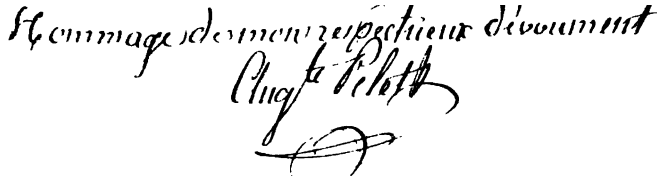 Hommage de mon respectueux dévoument
Aug^te Pelet